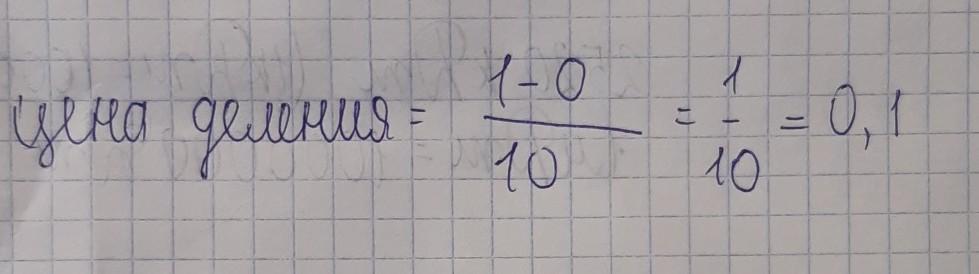 цена деления = \frac{1-0}{10} = \frac{1}{10} = 0,1